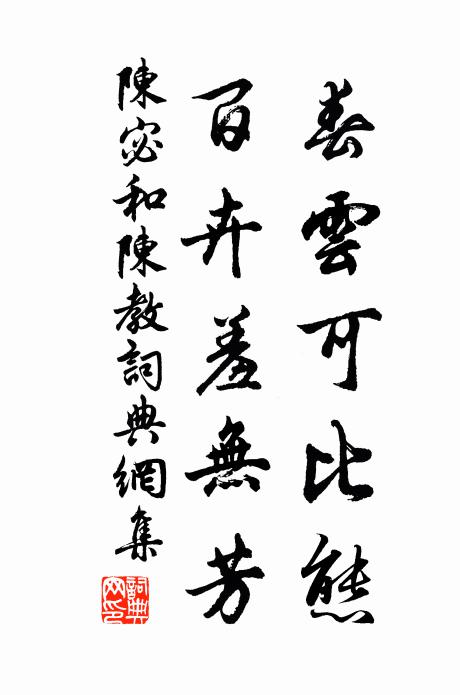 春雲可比態
百卉羞無芳
陳宓和陳教詞典網集
詞典网印